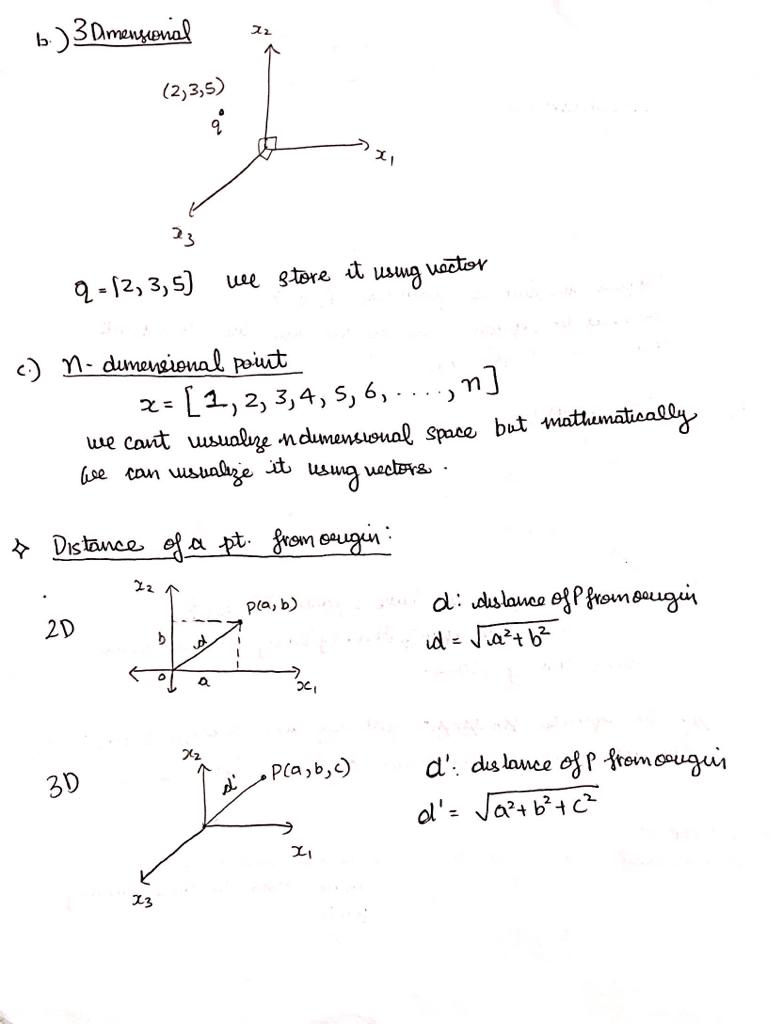 b.) 3 Dimensional
x₂
(2,3,5)
q
x₁
x₃
q = [2, 3, 5] we store it using vector
c.) n-dimensional point
x = [1, 2, 3, 4, 5, 6, ....., n]
we cant visualize n dimensional space but mathematically
we can visualize it using vectors.
✧ Distance of a pt. from origin:
2D
x₂
P(a, b)
b
d
0
a
x₁
d: distance of P from origin
d = √a²+b²
3D
x₂
d'
P(a, b, c)
x₁
x₃
d': distance of P from origin
d' = √a²+b²+c²